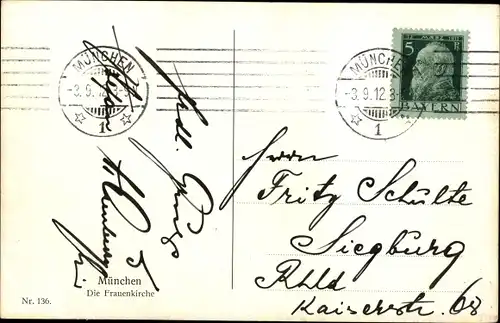 MÜNCHEN
-3.9.
1
MÜNCHEN
-3.9.12.
1
12. MÄRZ 1911
5 PF
BAYERN
Herrn
Fritz Schulte
Siegburg
Rhld
Kaiserstr. 68
Herzl. Grüße
München
Die Frauenkirche
Nr. 136.